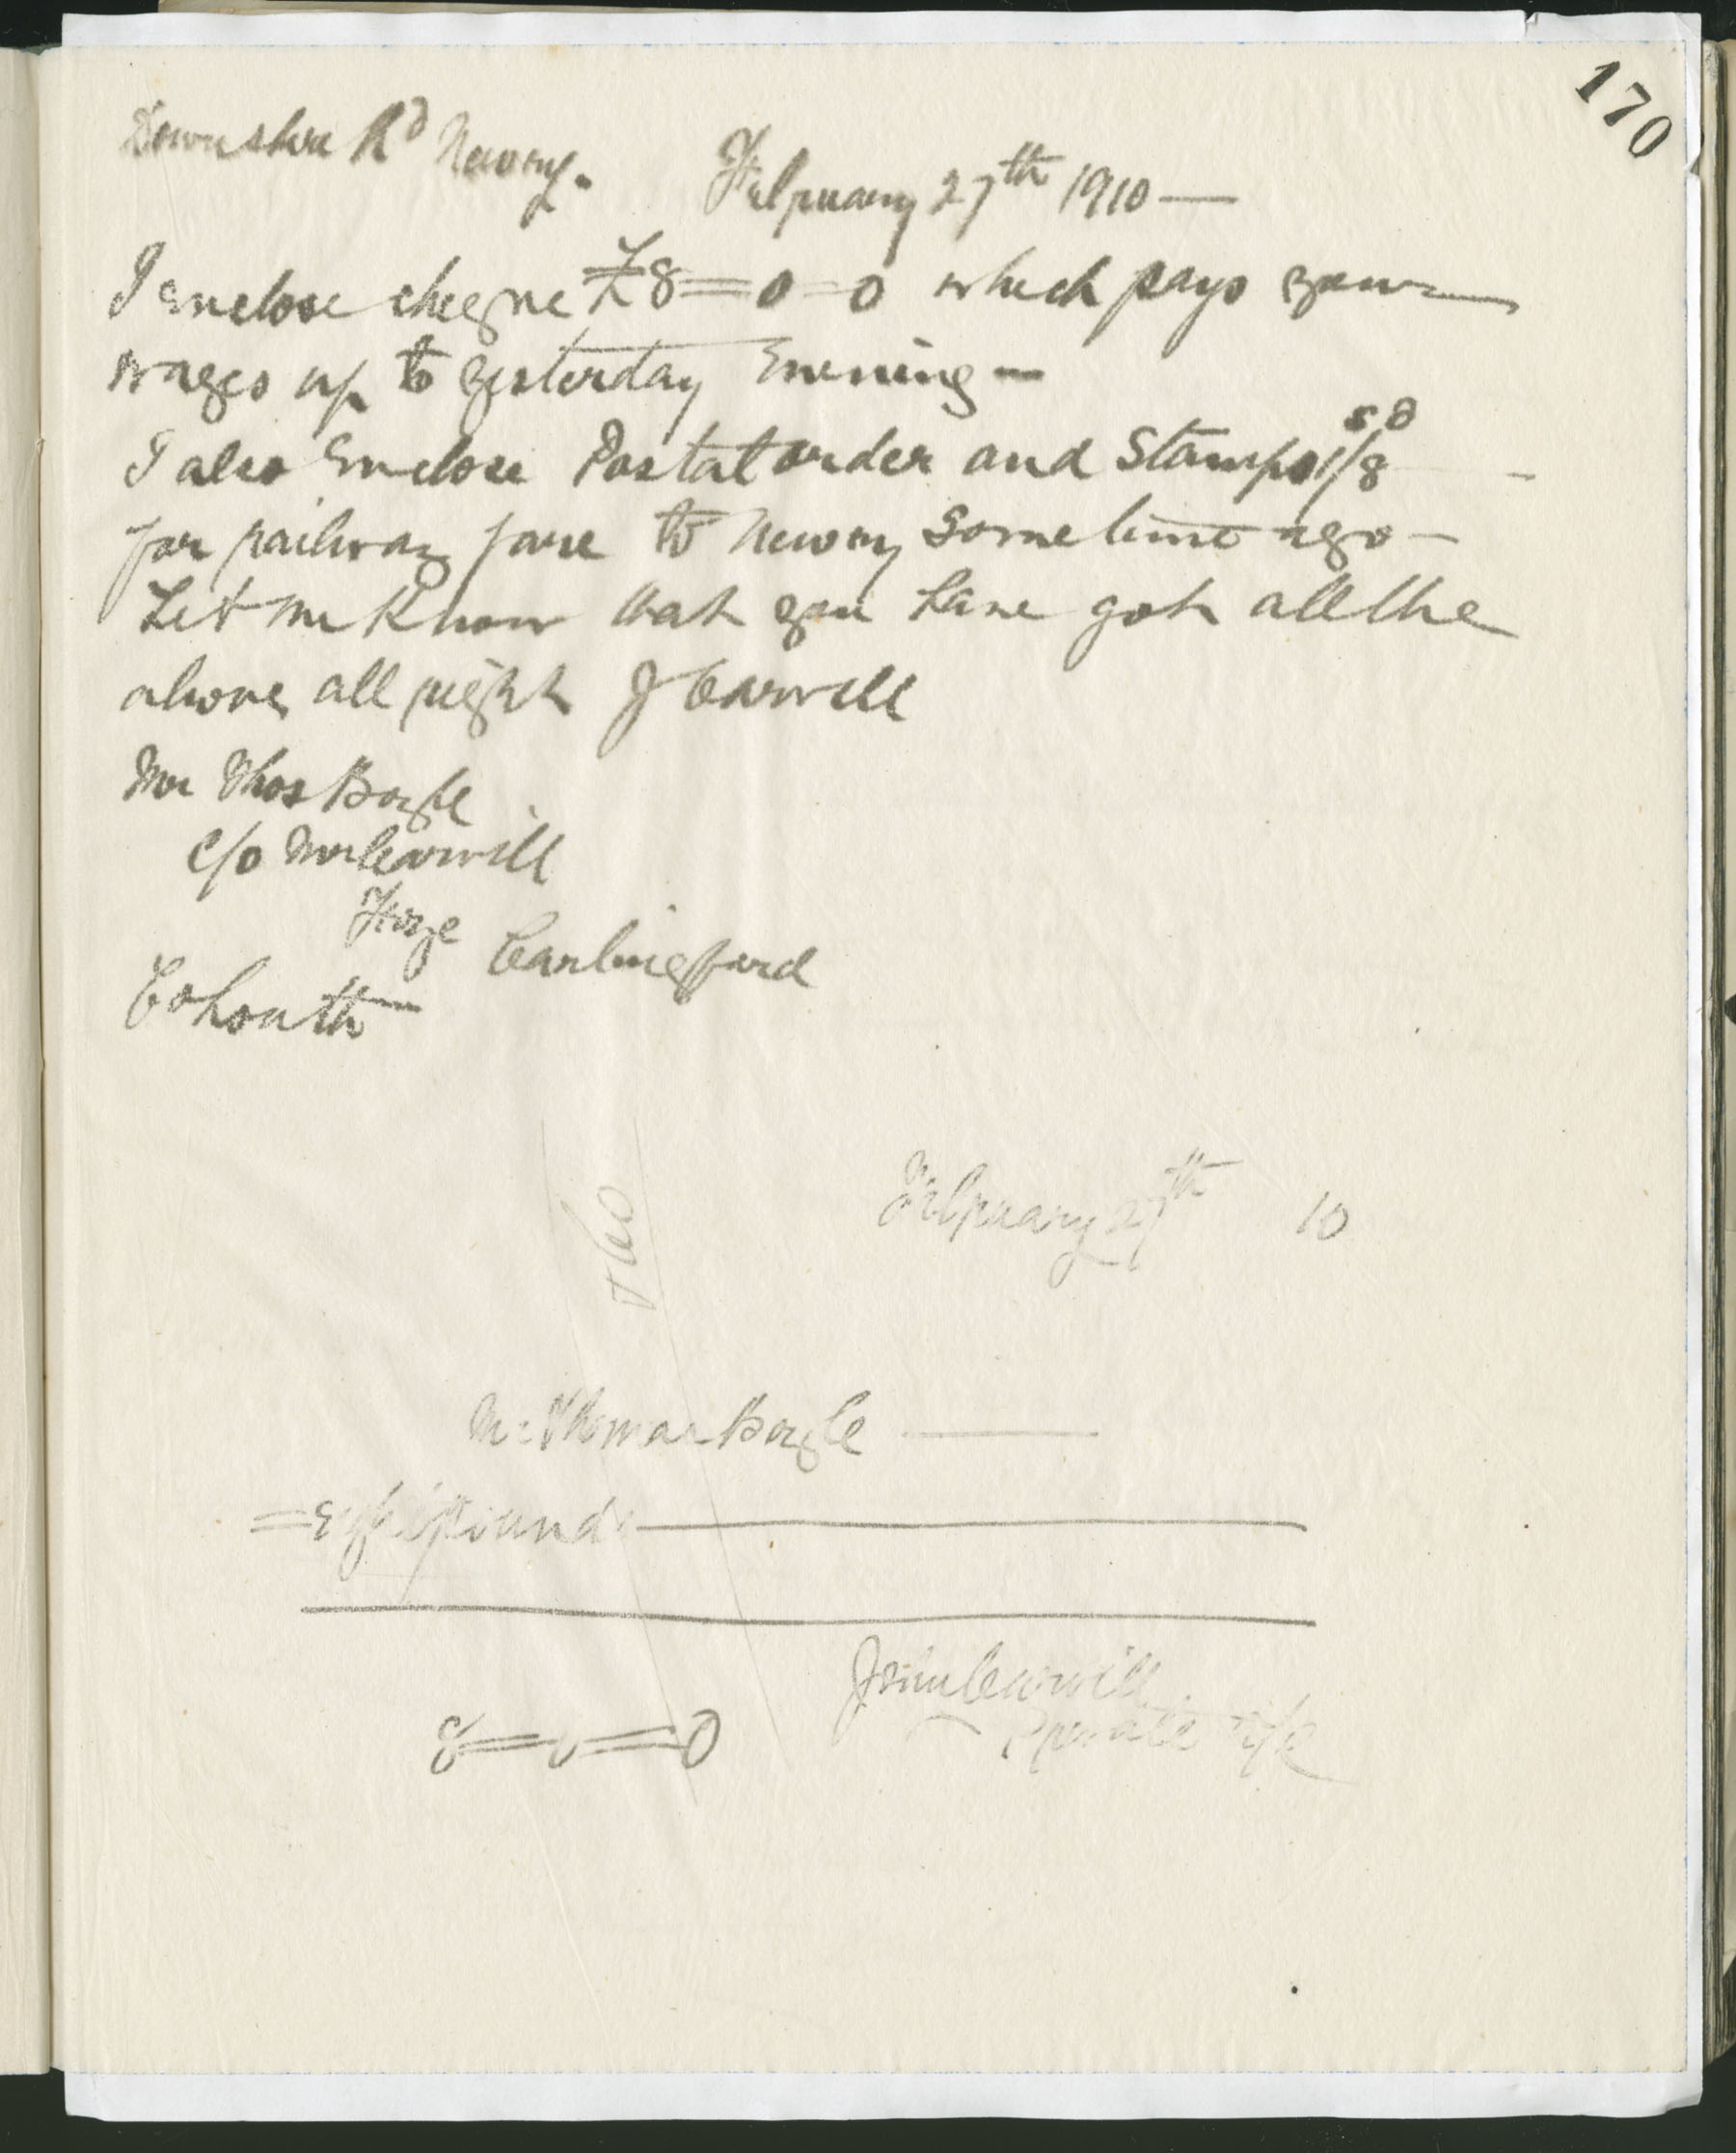 170
Downshire Rd Newry. February 27th 1910 —
I enclose cheque £8=0=0 which pays your
wages up to yesterday Evening —
I also Enclose Postal order and Stamps 1s/8d —
for railway fare to Newry sometime ago —
Let me Know that you have got all the
above all right J Carvill
Mr Thos Boyle
c/o Mr Carvill
Carlingford
Co Louth
February 27th 10
Mr Thomas Boyle —
= Eight pounds —
John Carvill
8=0=0 Private a/c